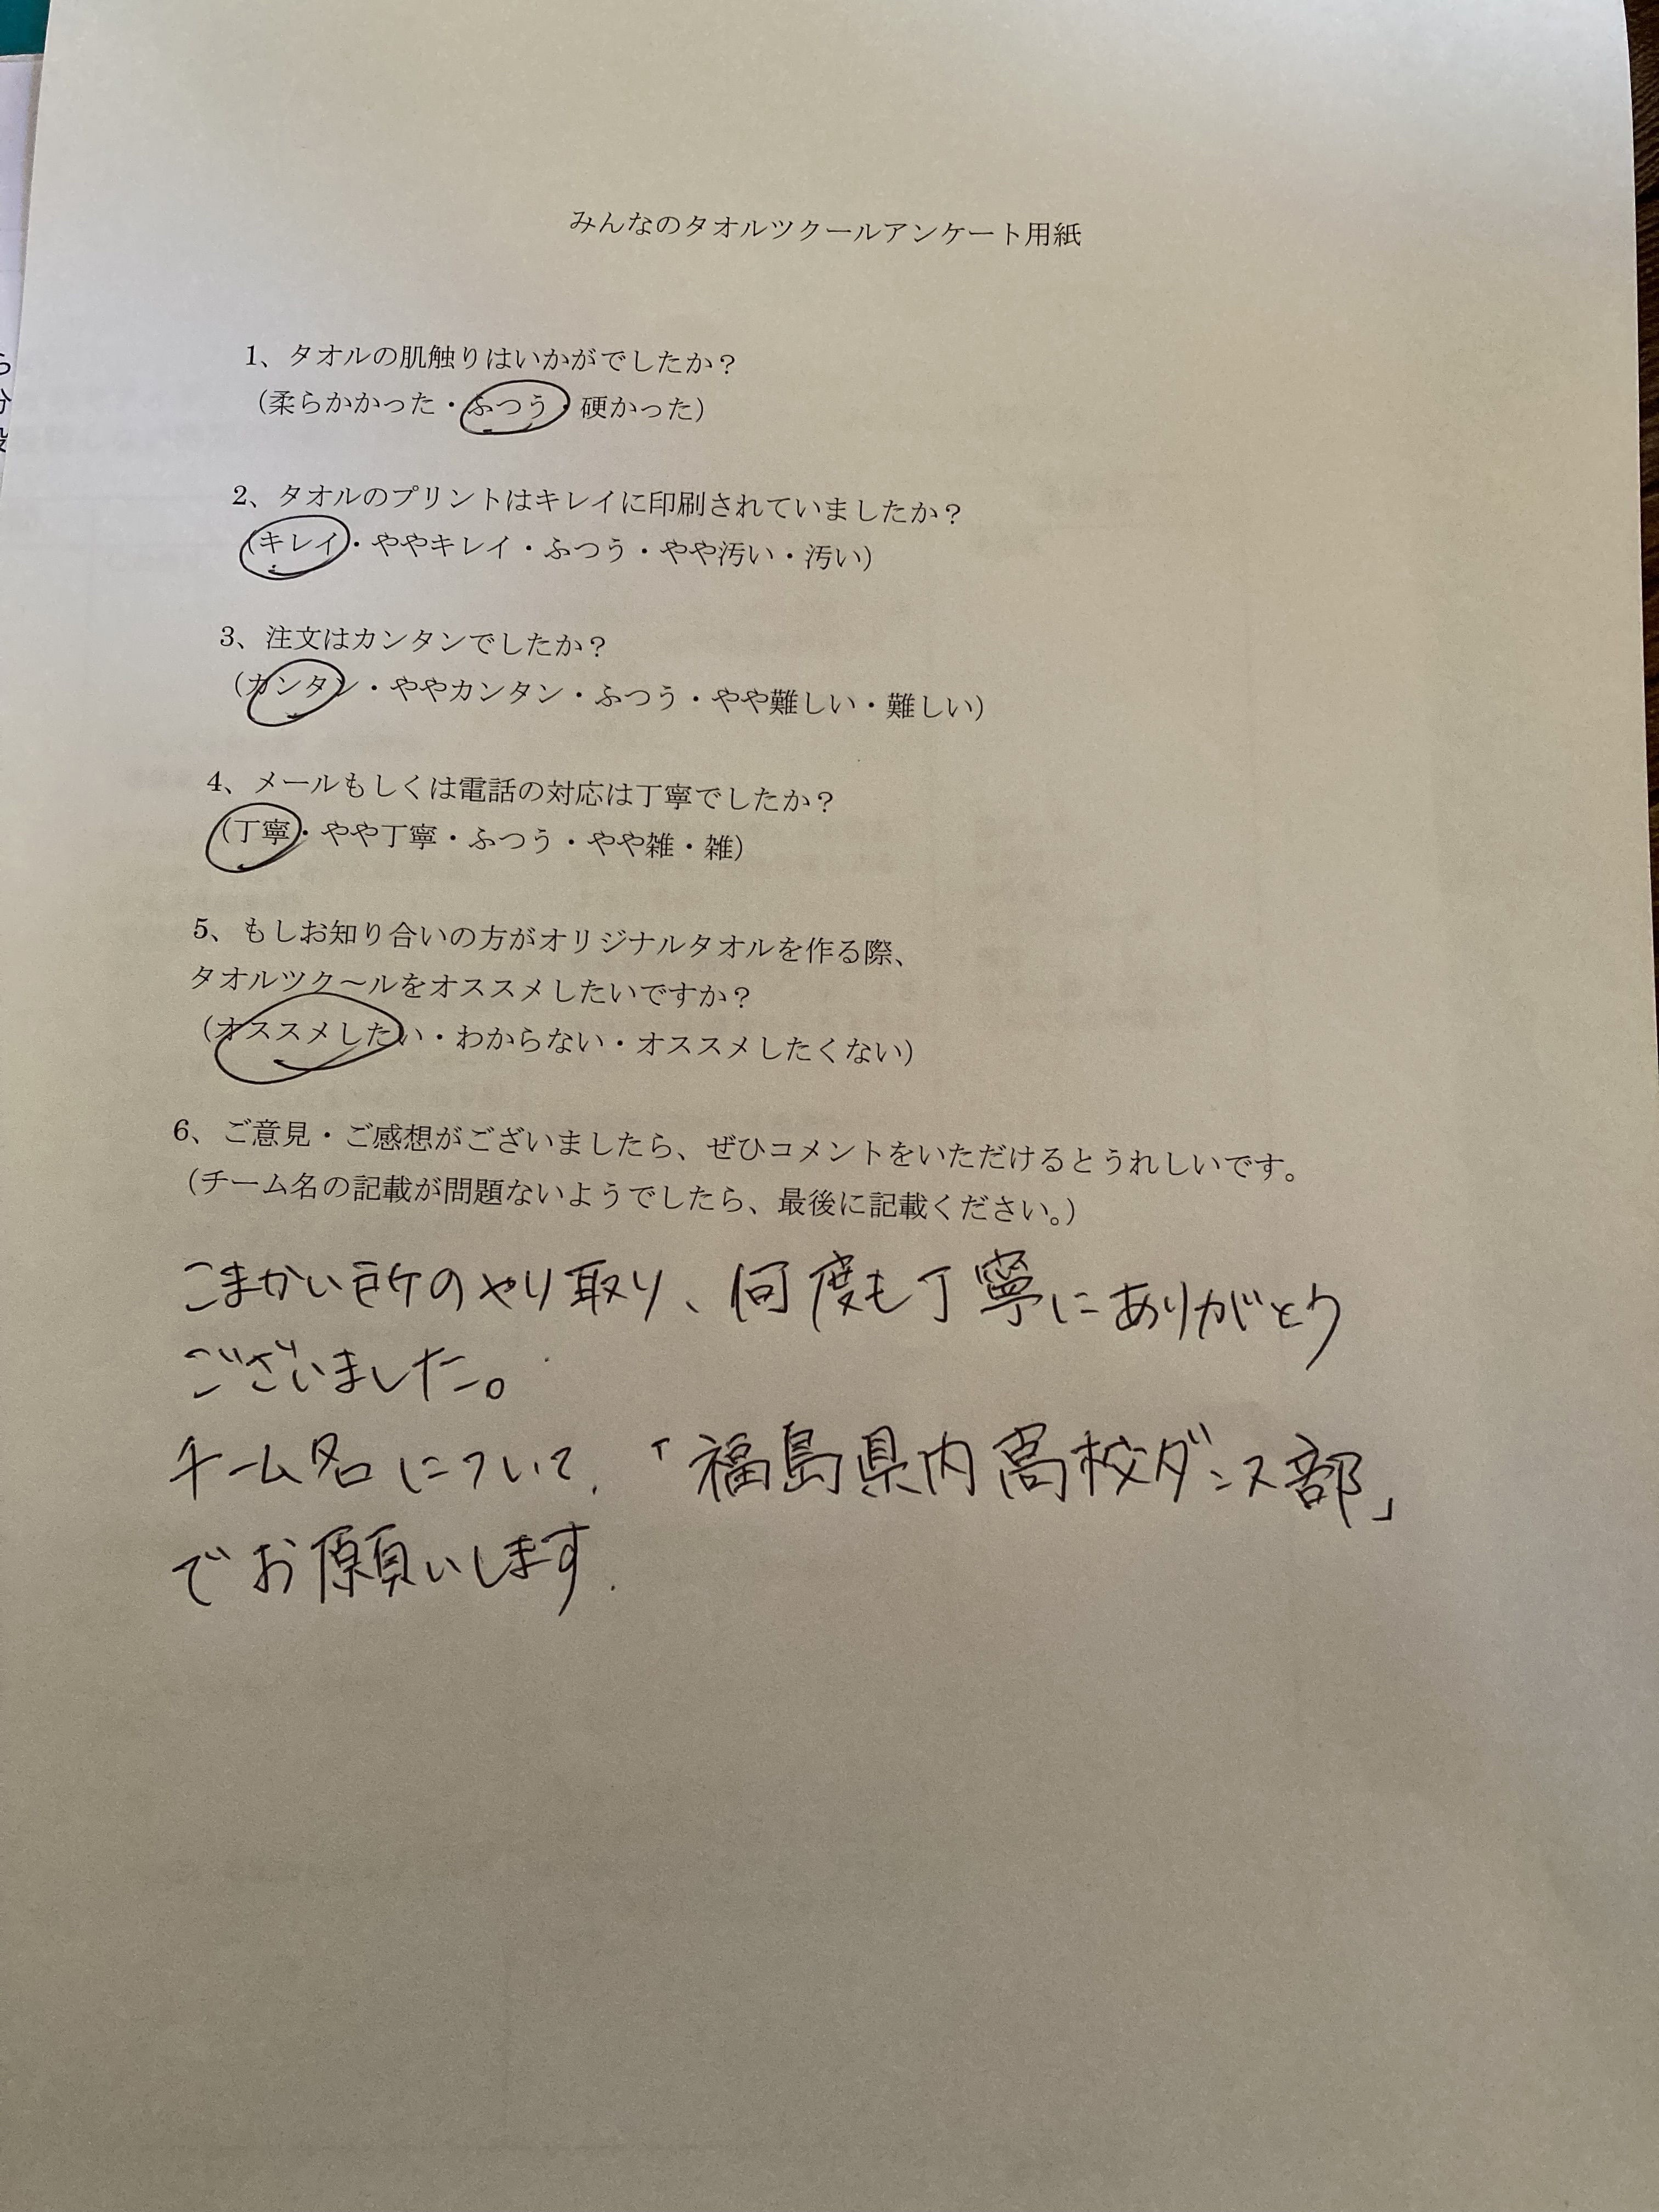 みんなのタオルツクールアンケート用紙
1、タオルの肌触りはいかがでしたか？
（柔らかかった・ふつう・硬かった）
2、タオルのプリントはキレイに印刷されていましたか？
（キレイ・ややキレイ・ふつう・やや汚い・汚い）
3、注文はカンタンでしたか？
（カンタン・ややカンタン・ふつう・やや難しい・難しい）
4、メールもしくは電話の対応は丁寧でしたか？
（丁寧・やや丁寧・ふつう・やや雑・雑）
5、もしお知り合いの方がオリジナルタオルを作る際、
タオルツク～ルをオススメしたいですか？
（オススメしたい・わからない・オススメしたくない）
6、ご意見・ご感想がございましたら、ぜひコメントをいただけるとうれしいです。
（チーム名の記載が問題ないようでしたら、最後に記載ください。）
こまかい所のやり取り、何度も丁寧にありがとう
ございました。
チーム名について、「福島県内高校ダンス部」
でお願いします.
ら
分